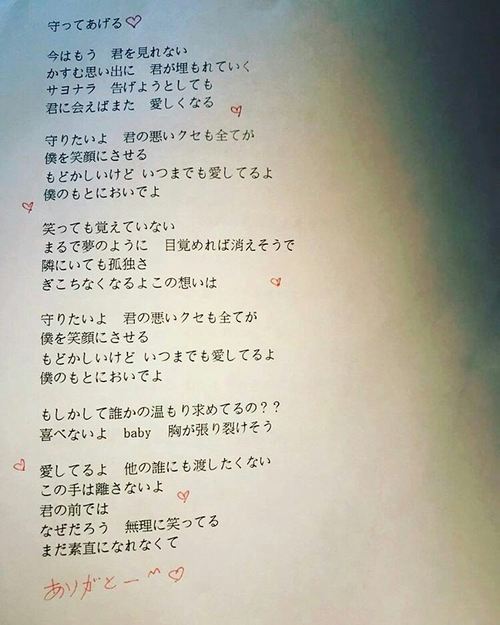 守ってあげる♡
今はもう 君を見れない
かすむ思い出に 君が埋もれていく
サヨナラ 告げようとしても
君に会えばまた 愛しくなる
守りたいよ 君の悪いクセも全てが
僕を笑顔にさせる
もどかしいけど いつまでも愛してるよ
僕のもとにおいでよ
笑っても覚えていない
まるで夢のように 目覚めれば消えそうで
隣にいても孤独さ
ぎこちなくなるよこの想いは
守りたいよ 君の悪いクセも全てが
僕を笑顔にさせる
もどかしいけど いつまでも愛してるよ
僕のもとにおいでよ
もしかして誰かの温もり求めてるの??
喜べないよ baby 胸が張り裂けそう
愛してるよ 他の誰にも渡したくない
この手は離さないよ
君の前では
なぜだろう 無理に笑ってる
まだ素直になれなくて
ありがとー^^♡